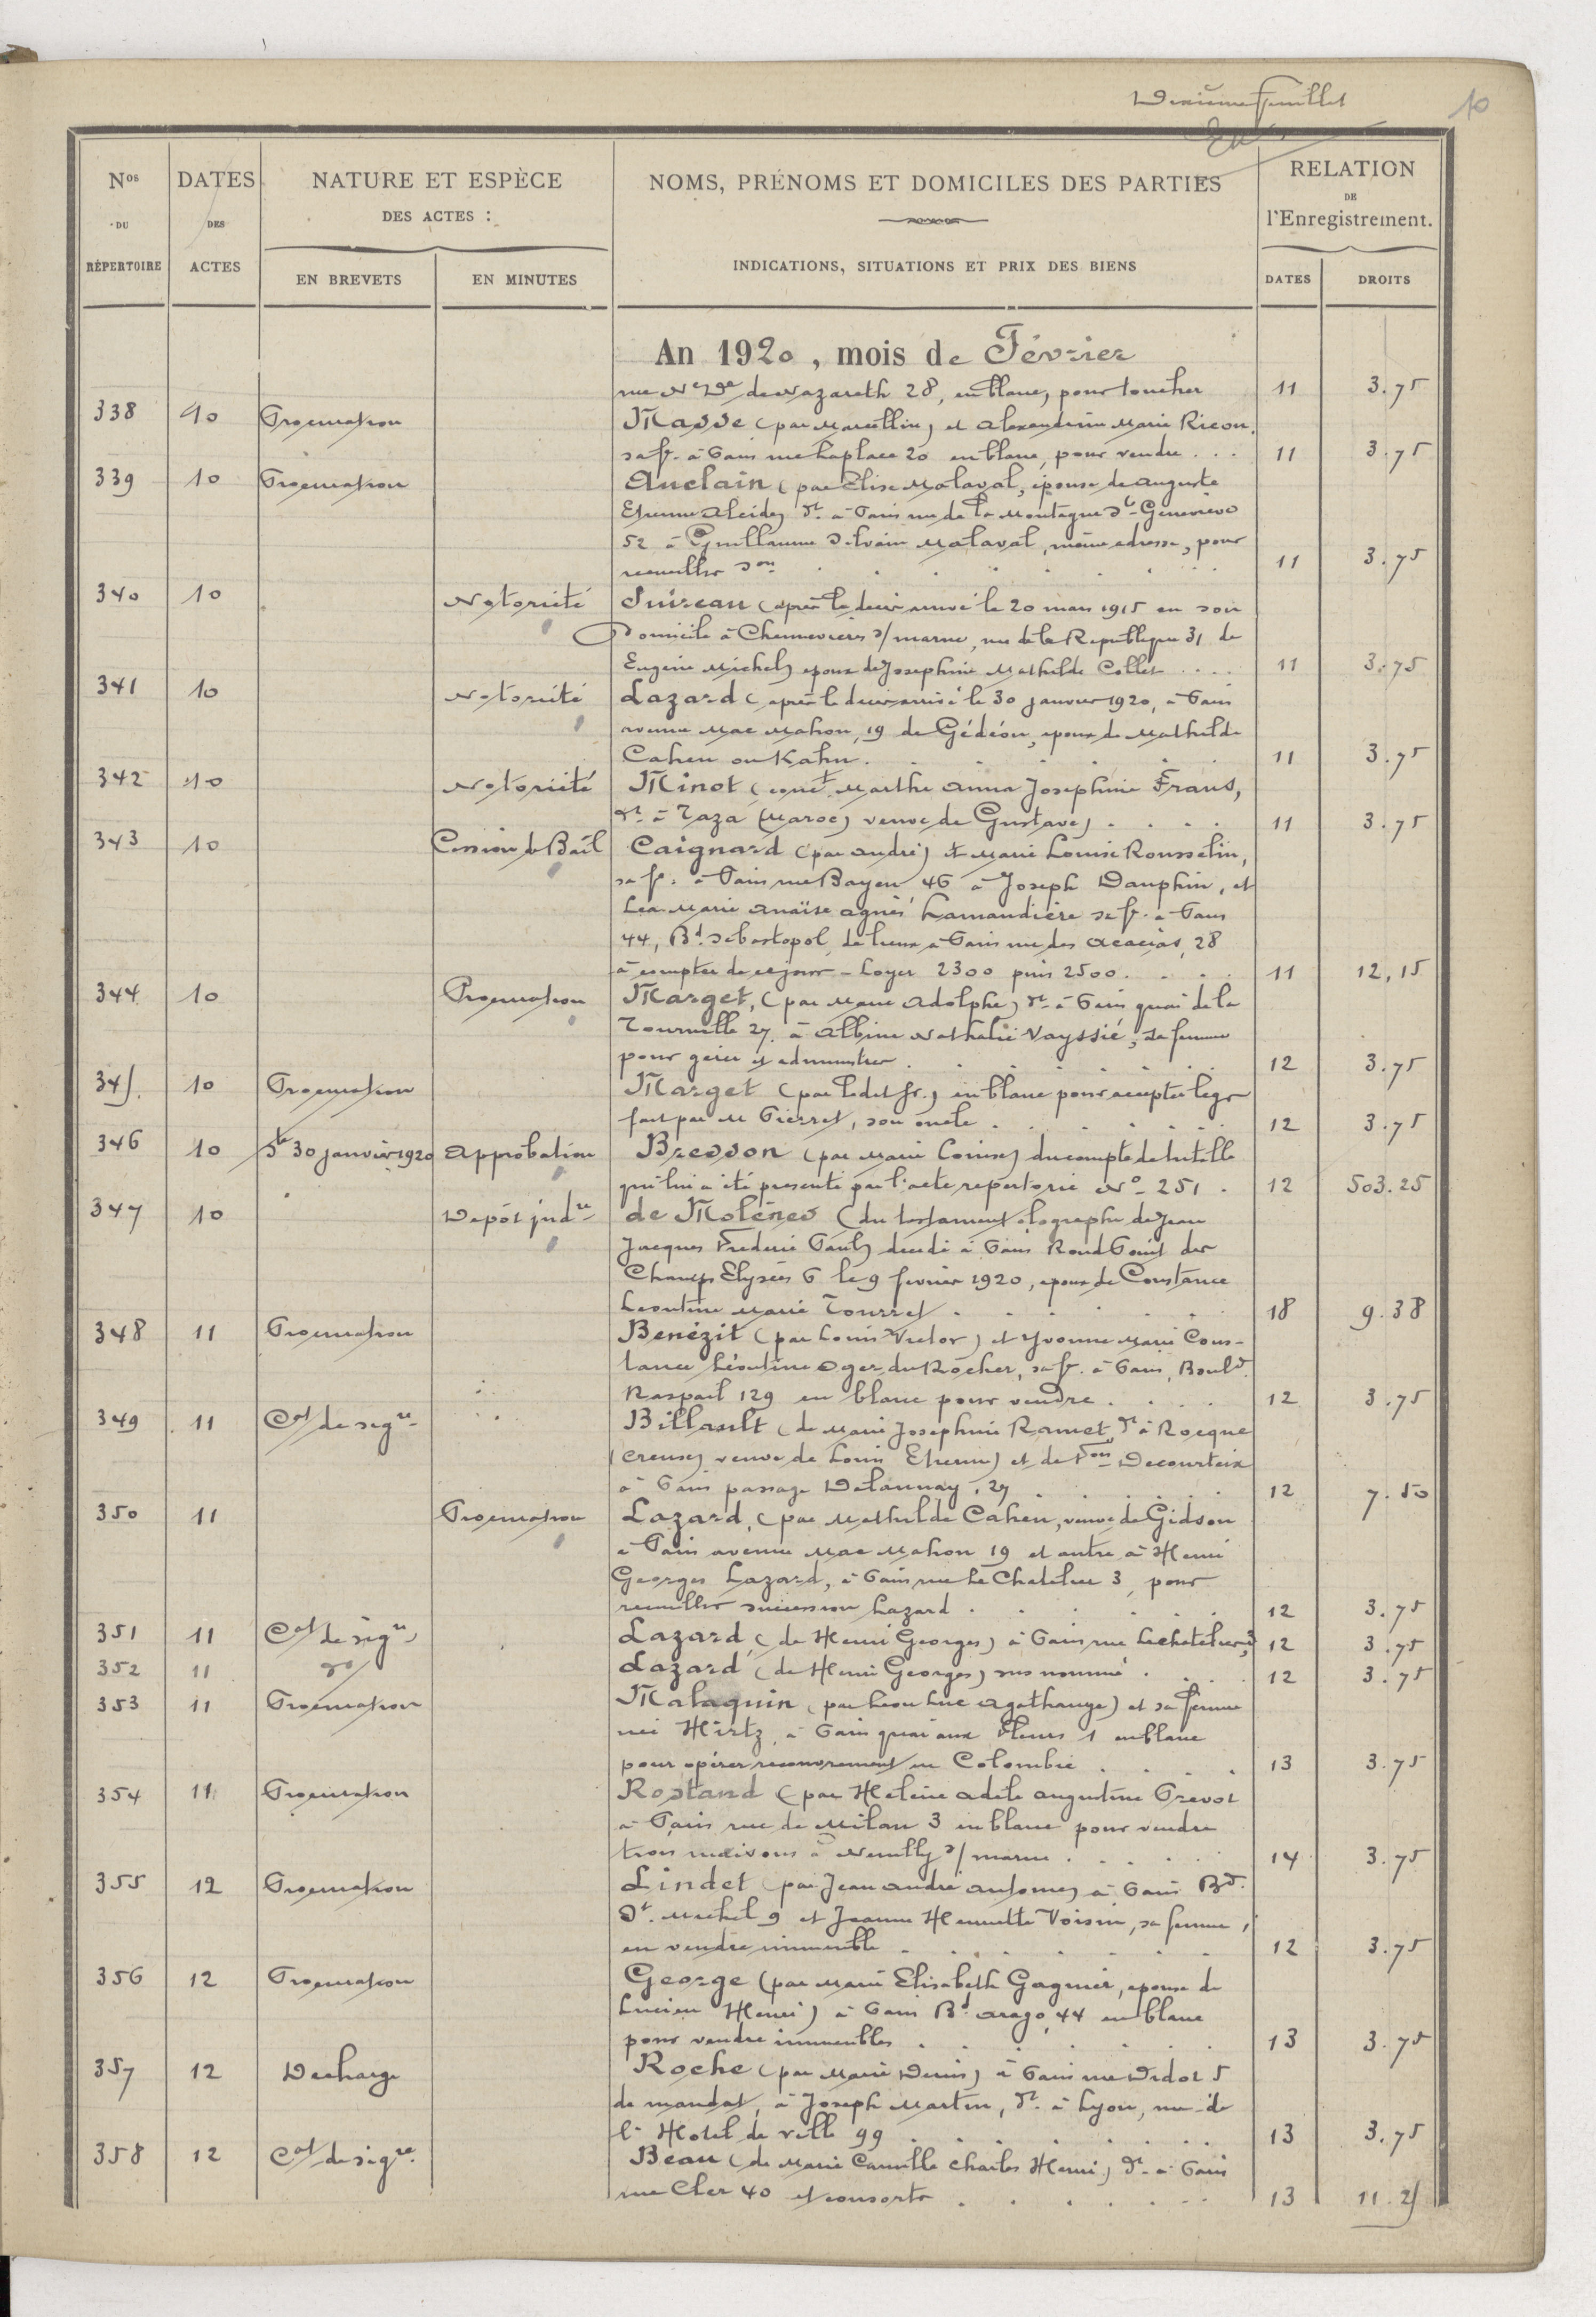 Dixième feuillet
10
Nos DU RÉPERTOIRE
DATES DES ACTES
NATURE ET ESPÈCE DES ACTES :
EN BREVETS
EN MINUTES
NOMS, PRÉNOMS ET DOMICILES DES PARTIES
INDICATIONS, SITUATIONS ET PRIX DES BIENS
RELATION DE l'Enregistrement.
DATES
DROITS
An 1920, mois de Février
rue Ne De de Nazareth 28, en blanc, pour toucher 11 3.75
338 10 Procuration Masse (par Marcellin) et Alexandrine Marie Ricon,
sa fe. à Paris rue Laplace 20 en blanc, pour vendre . . . 11 3.75
339 10 Procuration Auclain (par Elise Malaval, épouse de Auguste
Etienne Alcide) dt. à Paris rue de la Montagne Ste Geneviève
52 à Guillaume Silvain Malaval, même adresse, pour
recueillir son 11 3.75
340 10 Notoriété Suireau (après le décès arrivé le 20 mars 1915 en son
Domicile à Chennevières s/ marne, rue de la République 31 de
Eugène Michel) époux de Josephine Mathilde Collet . . . . 11 3.75
341 10 Notoriété Lazard (après le décès arrivé le 30 janvier 1920, à Paris
avenue Mac Mahon, 19 de Gédéon, époux de Mathilde
Cahen ou Kahn. 11 3.75
342 10 Notoriété Minot (conct. Marthe Anna Josephine Frans,
dt. à Taza (Maroc) veuve de Gustave) . . . . 11 3.75
343 10 Cession de Bail Caignard (par André) et Marie Louise Rousselin,
sa fe. à Paris rue Bayen 46 à Joseph Dauphin, et
Léa Marie Anaïse Agnès Lamandière sa fe. à Paris
44, Bd. Sébastopol, de lieux à Paris rue des Acacias, 28
à compter de ce jour - Loyer 2300 puis 2500. . . . 11 12,15
344 10 Procuration Marget, (par Marie Adolphe) dt. à Paris quai de la
Tournelle 27. à Albine Nathalie Vayssié, sa femme
pour gérer et administrer 12 3.75
345. 10 Procuration Marget (par ledit sr.) en blanc pour accepter legs
fait par M Pierret, son oncle . 12 3.75
346 10 Ste 30 janvier 1920 Approbation Bresson (par Marie Louise) du compte de tutelle
qui lui a été présenté par l'acte répertorié No. 251 . 12 503.25
347 10 Dépôt judre de Molènes (du testament olographe de Jean
Jacques Frédéric Paul) décédé à Paris Rond Point des
Champs Elysées 6 le 9 février 1920, époux de Constance
Léontine Marie Tourret 18 9.38
348 11 Procuration Benézit (par Louis Victor) et Yvonne Marie Cons-
tance Léontine Oger du Rocher, sa fe. à Paris, Bould.
Raspail 129 en blanc pour vendre . . . . 12 3.75
349 11 Cat de sigre Billault (de Marie Josephine Ramet dt. à Rocque
(Creuse) veuve de Louis Etienne) et de Fois Decourteix
à Paris passage Delaunay, 27 12 7.50
350 11 Procuration Lazard, (par Mathilde Cahen, veuve de Gidson
à Paris avenue Mac Mahon 19 et autre à Henri
Georges Lazard, à Paris rue Le Chatelier 3, pour
recueillir succession Lazard . 12 3.75
351 11 Cat de sigre Lazard (de Henri Georges) à Paris rue Lechatelier, 3 12 3.75
352 11 do Lazard (de Henri Georges) sus nommé . 12 3.75
353 11 Procuration Malaquin (par Léon Luc Agathange) et sa femme
née Hirtz, à Paris quai aux Fleurs 1 en blanc
pour opérer recouvrement en Colombie . . . 13 3.75
354 11 Procuration Rostand (par Helène Adèle Augustine Prevot
à Paris rue de Milan 3 en blanc pour vendre
trois maisons à Neuilly s/ marne . . . 14 3.75
355 12 Procuration Lindet (par Jean André Antoine) à Paris Bd.
St. Michel 9 et Jeanne Henriette Voisin, sa femme,
en vendre immeuble 12 3.75
356 12 Procuration George (par Marie Elisabeth Gagnier, épouse de
Lucien Henri) à Paris Bd. Arago, 44 en blanc
pour vendre immeubles . 13 3.75
357 12 Décharge Roche (par Marie Denis) à Paris rue Didot 5
de mandat, à Joseph Martin, dt. à Lyon, rue de
l'Hotel de ville 99 13 3.75
358 12 Cat de sigre. Beau (de Marie Camille Charles Henri) dt. à Paris
rue Cler 40 et consorts . . . . 13 11.25